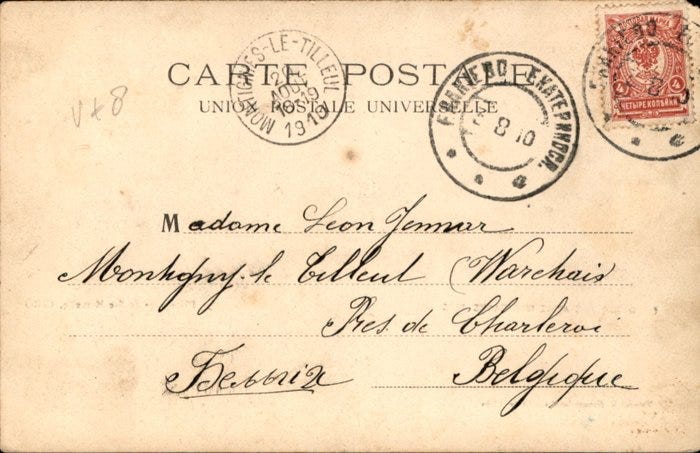 CARTE POSTALE
UNION POSTALE UNIVERSELLE
V + 8
MONTIGNIES-LE-TILLEUL
AOUT
18-19
1910
ЕКАТЕРИНОСЛ.
8 10
а
4 4
ЧЕТЫРЕ КОПѢЙКИ
Madame Leon Jennar
Montigny-le Tilleul Warchais
Pres de Charleroi
Бельгія Belgique